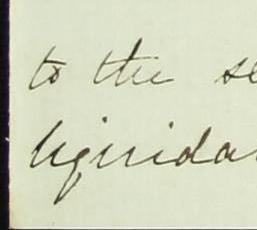 to the se
liquida